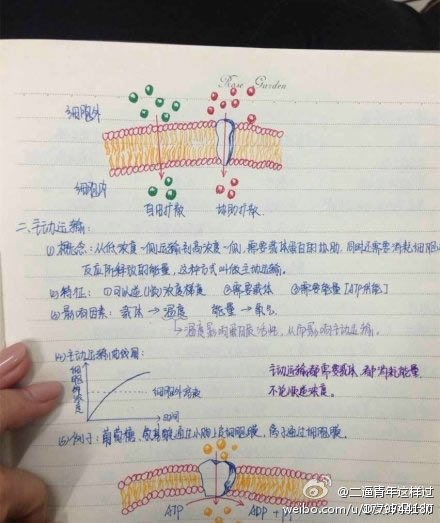 Rose Garden
细胞外
细胞内
自由扩散 协助扩散
二、主动运输:
(1) 概念:从低浓度一侧运输到高浓度一侧,需要载体蛋白的协助,同时还需要消耗细胞
反应所释放的能量,这种方式叫做主动运输。
(2) 特征: ①可以逆(低)浓度梯度 ②需要载体 ③需要能量[ATP供能]
(3) 影响因素: 载体 → 温度 能量 → 氧气
→温度影响 活性,从而影响主动运输。
(4) 主动运输曲线图:
细胞 浓度
细胞外溶液
时间
主动运输都需要载体,都消耗能量
不论 浓度。
(5) 例子:葡萄糖、氨基酸通过小肠上皮细胞膜,离子通过细胞膜。
ATP ADP + Pi
@二逼青年这样过
weibo.com/u/